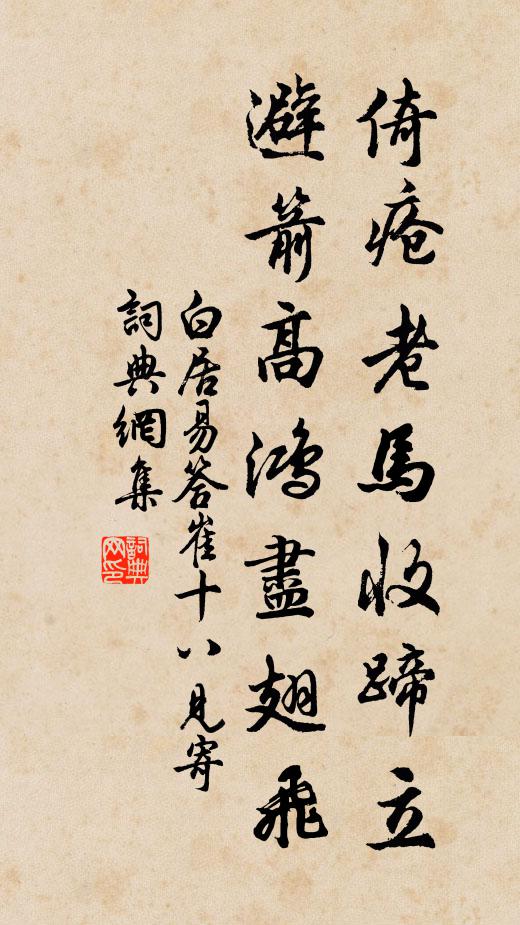 倚瘡老馬收蹄立
避箭高鴻盡翅飛
白居易答崔十八見寄
詞典網集
詞典
网印